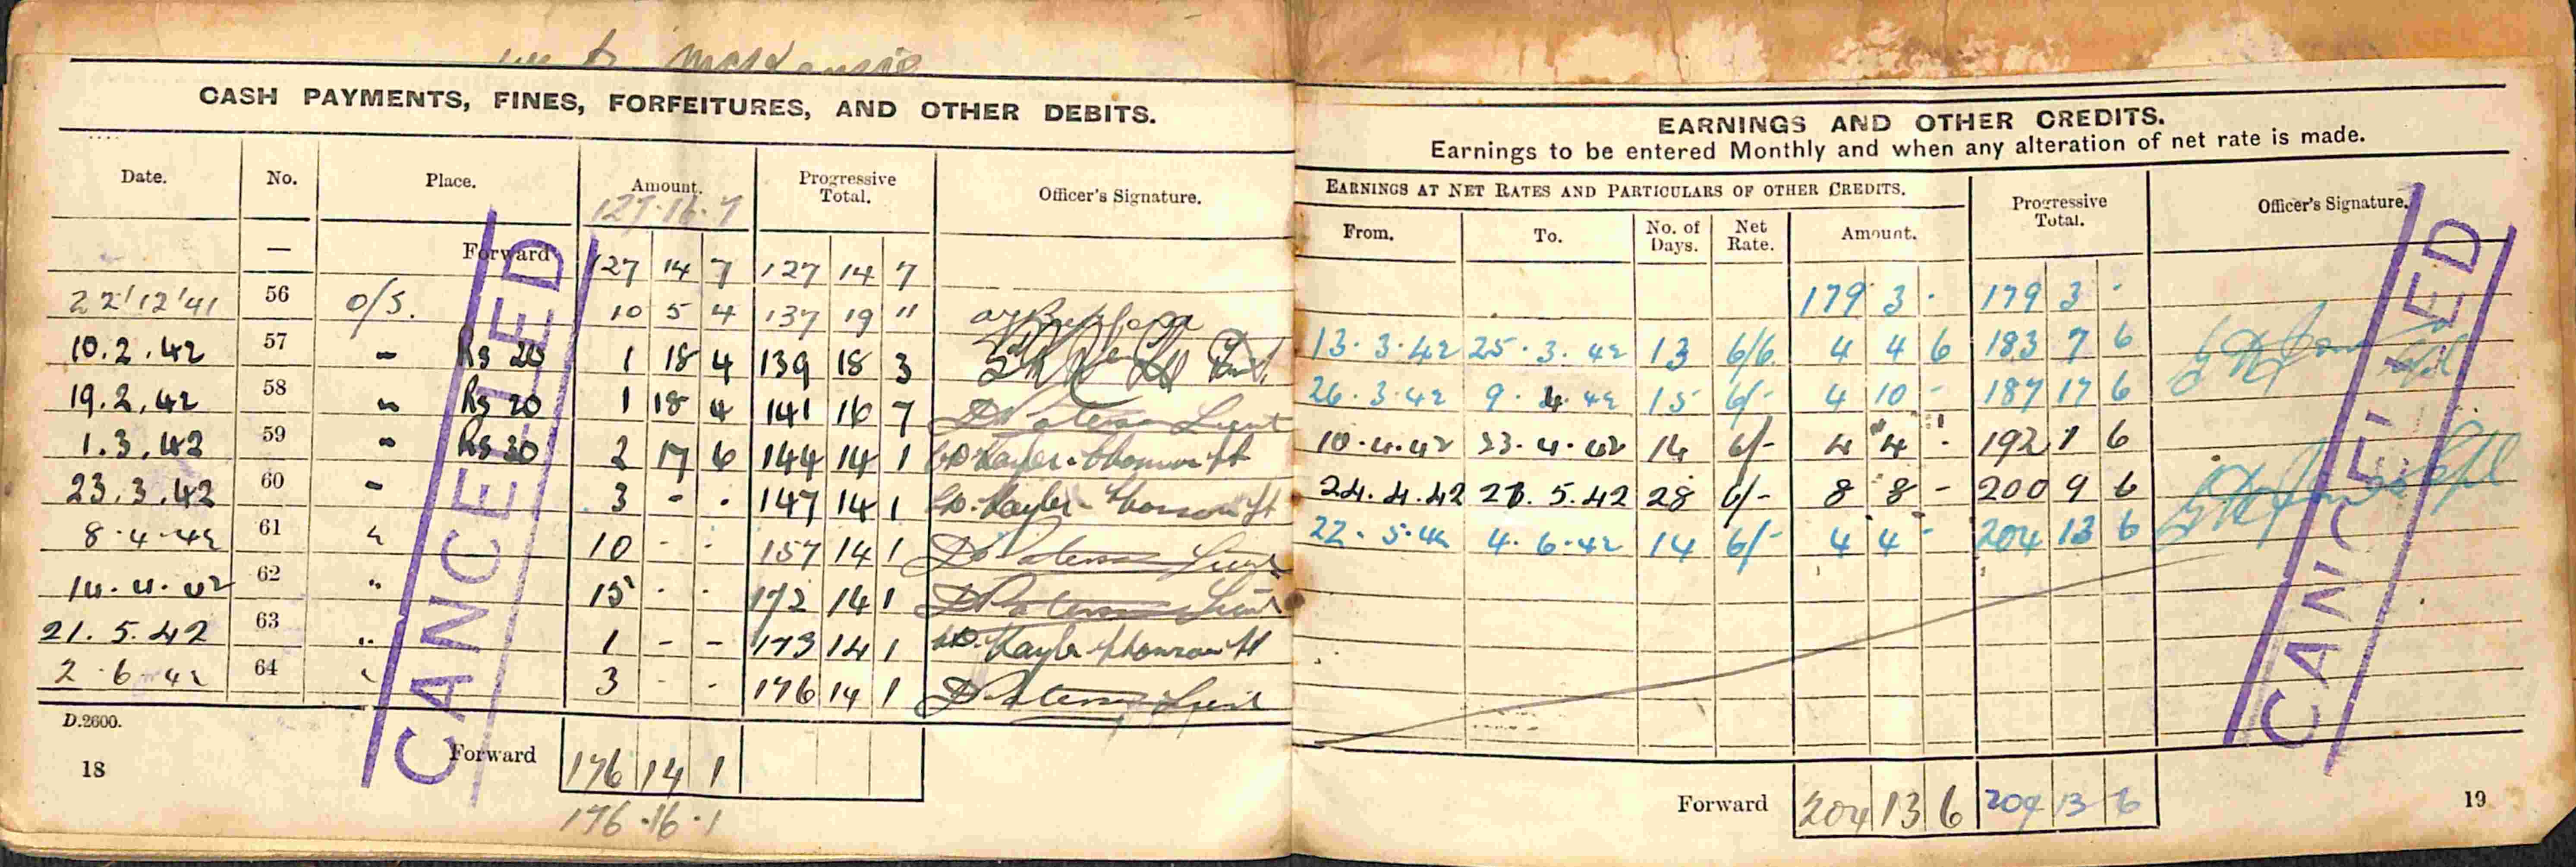 McKenzie
CASH PAYMENTS, FINES, FORFEITURES, AND OTHER DEBITS.
Date. No. Place. Amount. Progressive Total. Officer's Signature.
127.16.7
— Forward 127 14 7 127 14 7
22/12/41 56 O/S. 10 5 4 137 19 "
10.2.42 57 " Rs 20 1 18 4 139 18 3
19.2.42 58 " Rs 20 1 18 4 141 16 7 D Paterson Lieut
1.3.42 59 " Rs 30 2 17 6 144 14 1
23.3.42 60 " 3 - - 147 14 1
8.4.42 61 " 10 - - 157 14 1 D Paterson Lieut
14.4.42 62 " 15 - - 172 14 1 D Paterson Lieut
21.5.42 63 " 1 - - 173 14 1
2.6.42 64 " 3 - - 176 14 1 D Paterson Lieut
D.2600.
Forward 176 14 1
18
176.16.1
CANCELLED
EARNINGS AND OTHER CREDITS.
Earnings to be entered Monthly and when any alteration of net rate is made.
EARNINGS AT NET RATES AND PARTICULARS OF OTHER CREDITS. Progressive Total. Officer's Signature.
From. To. No. of Days. Net Rate. Amount.
179 3 - 179 3 -
13.3.42 25.3.42 13 6/6 4 4 6 183 7 6
26.3.42 9.4.42 15 6/- 4 10 - 187 17 6
10.4.42 23.4.42 14 6/- 4 4 - 192 1 6
24.4.42 21.5.42 28 6/- 8 8 - 200 9 6
22.5.42 4.6.42 14 6/- 4 4 - 204 13 6
Forward 204 13 6 204 13 6
19
CANCELLED